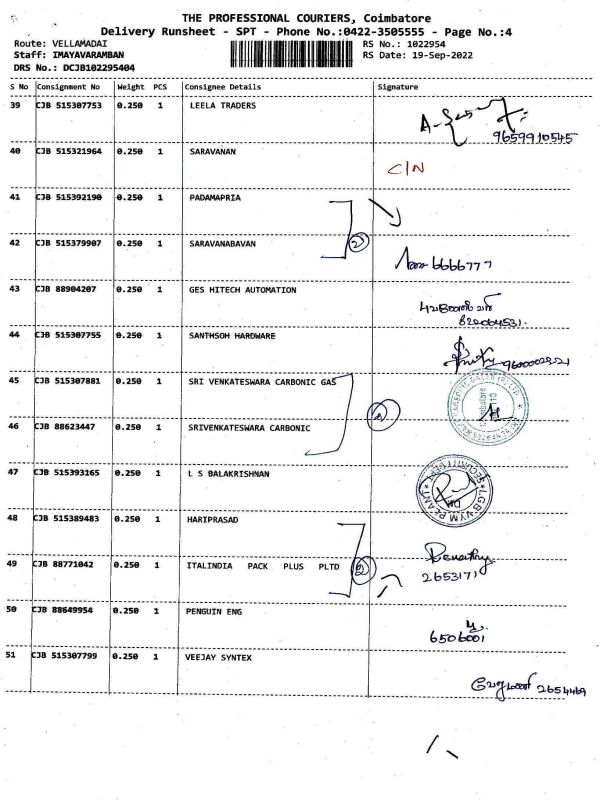 THE PROFESSIONAL COURIERS, Coimbatore
Delivery Runsheet - SPT - Phone No.:0422-3505555 - Page No.:4
Route: VELLAMADAI RS No.: 1022954
Staff: IMAYAVARAMBAN RS Date: 19-Sep-2022
DRS No.: DCJB102295404
S No Consignment No Weight PCS Consignee Details Signature
39 CJB 515307753 0.250 1 LEELA TRADERS
9659910545
40 CJB 515321964 0.250 1 SARAVANAN
C/N
41 CJB 515392190 0.250 1 PADAMAPRIA
42 CJB 515379907 0.250 1 SARAVANABAVAN
2
6666777
43 CJB 88904207 0.250 1 GES HITECH AUTOMATION
44 CJB 515307755 0.250 1 SANTHSOH HARDWARE
45 CJB 515307881 0.250 1 SRI VENKATESWARA CARBONIC GAS
46 CJB 88623447 0.250 1 SRIVENKATESWARA CARBONIC
2
47 CJB 515393165 0.250 1 L S BALAKRISHNAN
48 CJB 515389483 0.250 1 HARIPRASAD
49 CJB 88771042 0.250 1 ITALINDIA PACK PLUS PLTD
2
2653171
50 CJB 88649954 0.250 1 PENGUIN ENG
6506001
51 CJB 515307799 0.250 1 VEEJAY SYNTEX
வேலுமணி 2654469